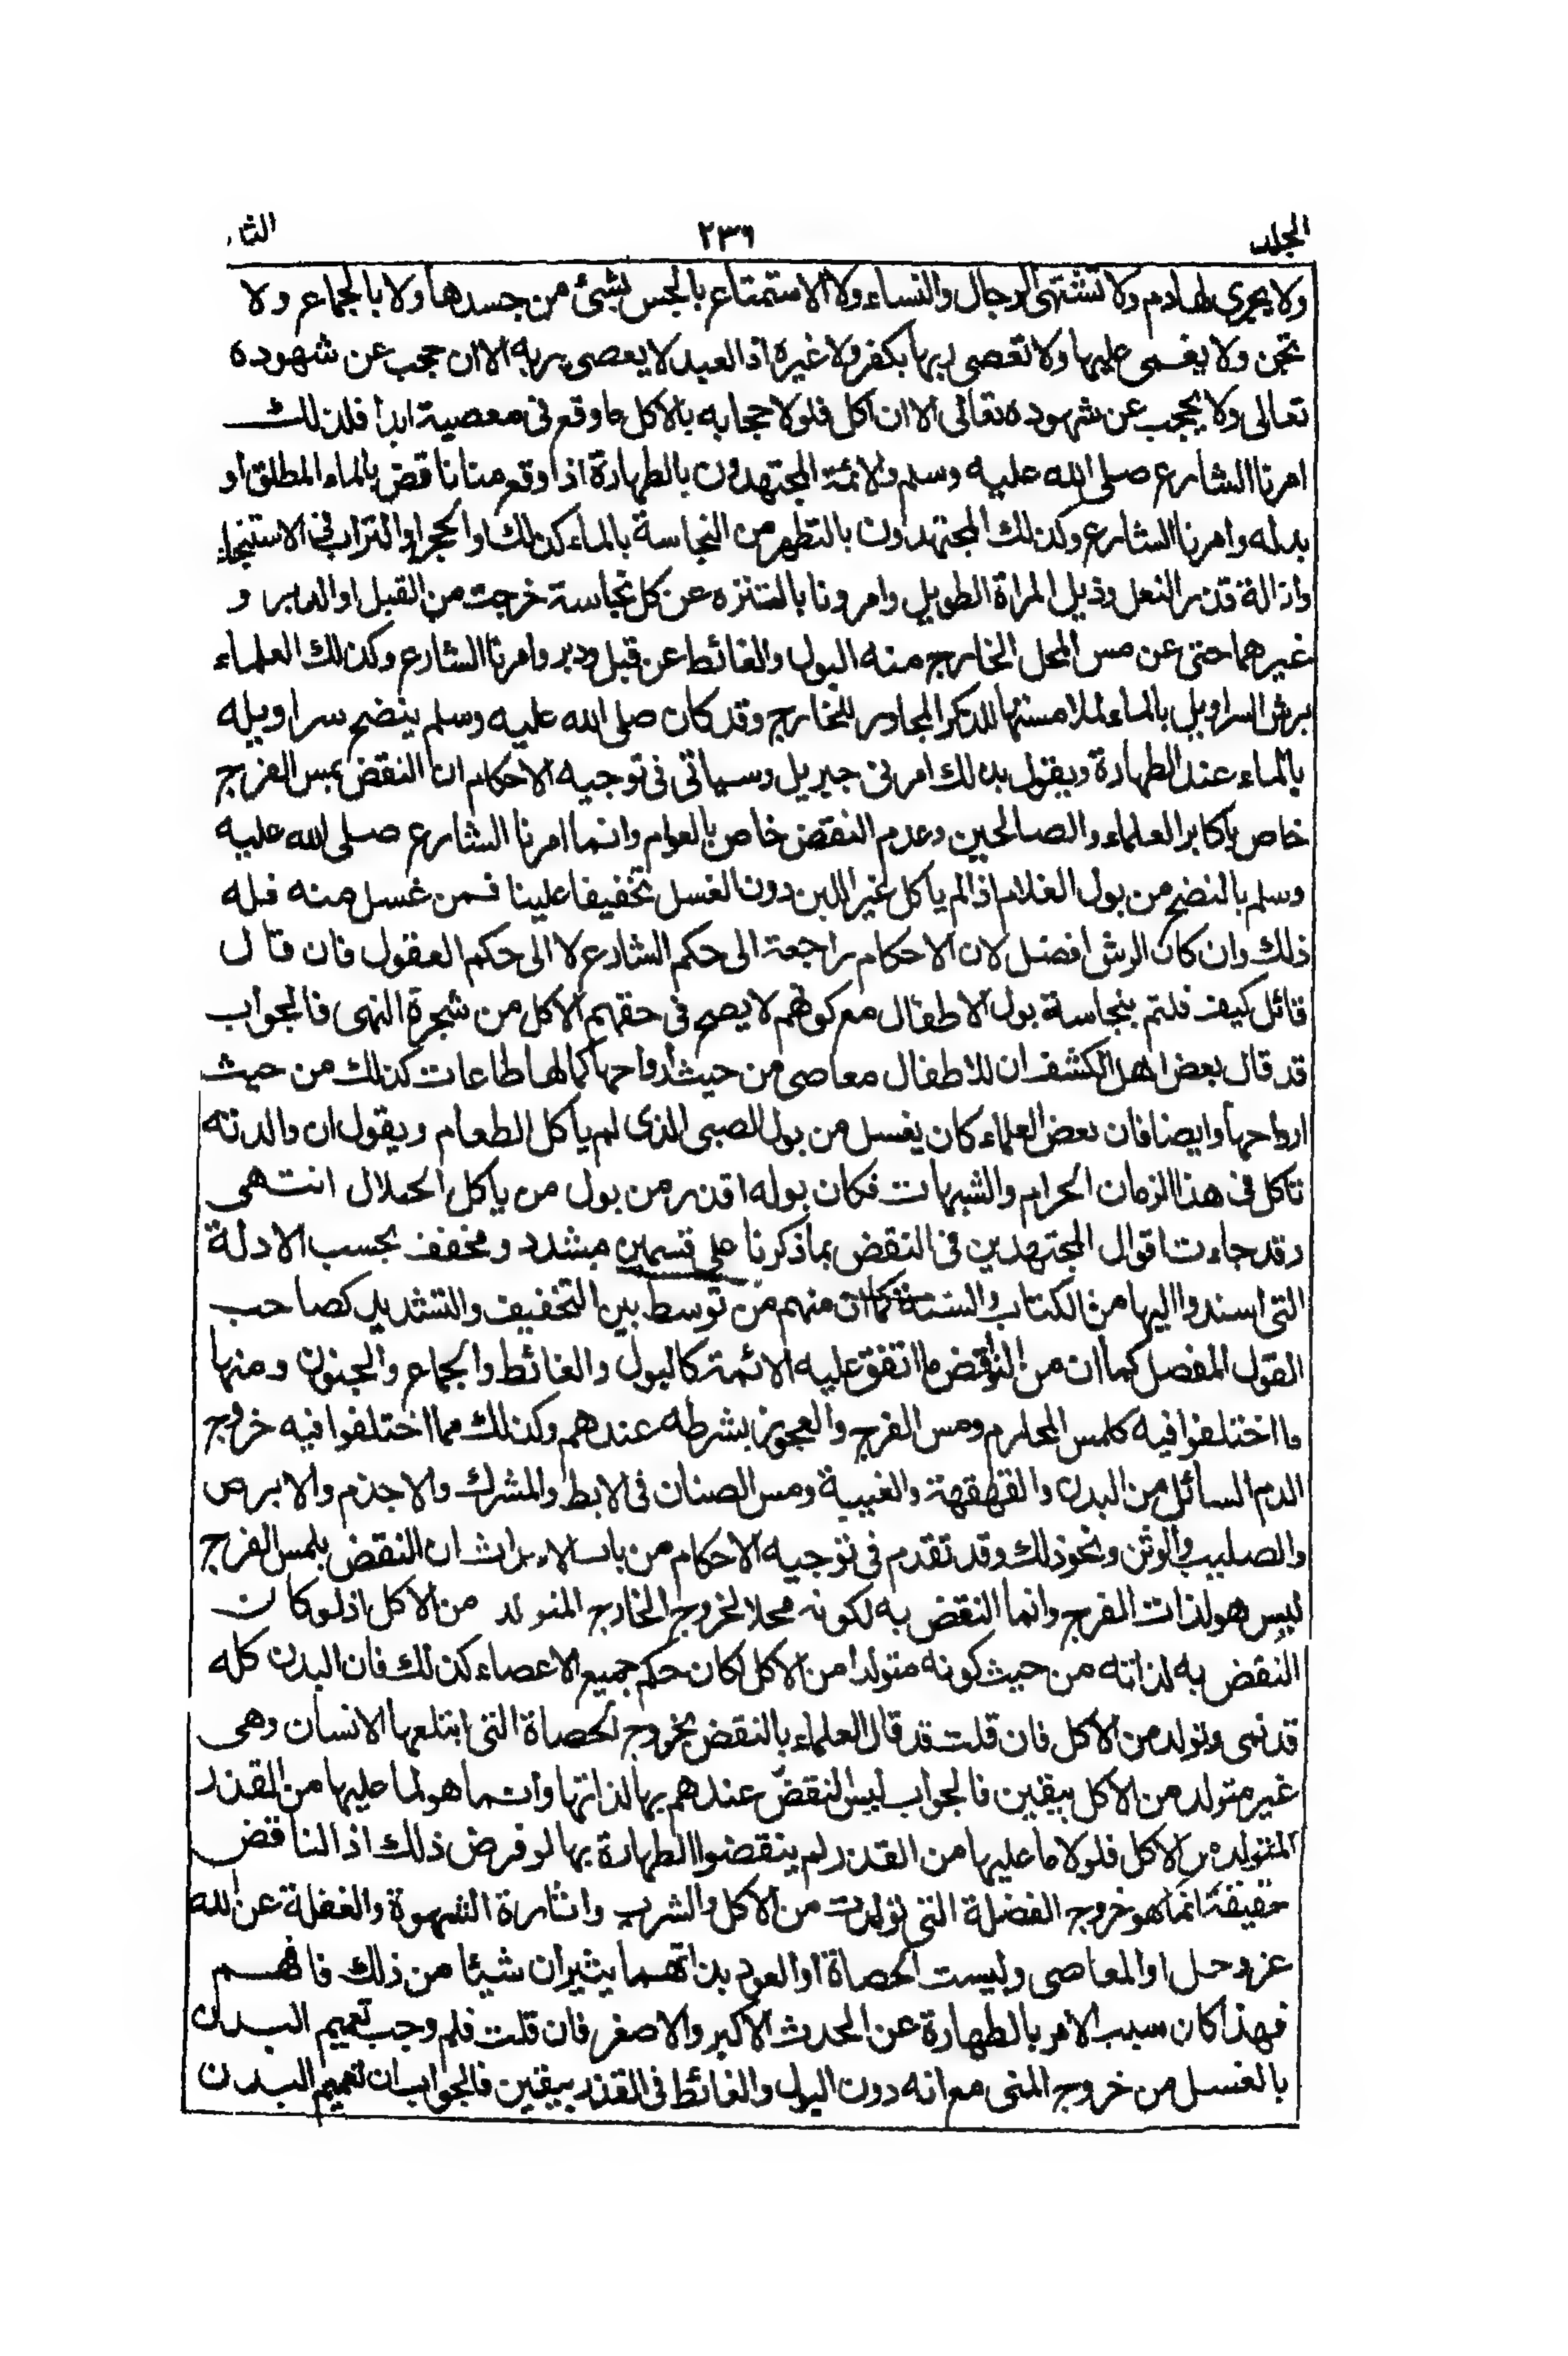 المجلد ٢٣٦ الثا
ولا يجرى لها دم ولا تشتهى الرجال والنساء ولا الاستمتاع بالجس لشئ من جسدها ولا بالجماع ولا
تجن ولا يغمى عليها ولا تعصى ربها بكفر ولا غيره اذ العبد لا يعصى ربه الا ان حجب عن شهوده
تعالى ولا يحجب عن شهوده تعالى الا ان اكل فلولا حجابه بالاكل ما وقع فى معصية ابدا فلذلك
امرنا الشارع صلى الله عليه وسلم والائمة المجتهدون بالطهارة اذا وقع منا ناقض بالماء المطلق او
بدله وامرنا الشارع وكذلك المجتهدون بالتطهر من النجاسة بالماء كذلك او الحجر او التراب فى الاستنجاء
وازالة قذر النعل وذيل المراة الطويل وامرونا بالتنزه عن كل نجاسة خرجت من القبل او الدبر و
غيرهما حتى عن مس المحل الخارج منه البول والغائط عن قبل ودبر وامرنا الشارع وكذلك العلماء
برش السراويل بالماء لملامستها للذكر المجاور للخارج وقد كان صلى الله عليه وسلم ينضح سراويله
بالماء عند الطهارة ويقول بذلك امرنى جبريل وسياتى فى توجيه الاحكام ان النقض بمس الفرج
خاص باكابر العلماء والصالحين وعدم النقض خاص بالعوام وانما امرنا الشارع صلى الله عليه
وسلم بالنضح من بول الغلام اذا لم ياكل غير اللبن دون الغسل تخفيفا علينا فمن غسل منه فله
ذلك وان كان الرش افضل لان الاحكام راجعة الى حكم الشارع لا الى حكم العقول فان قال
قائل كيف قلتم بنجاسة بول الاطفال مع كونهم لا يصح فى حقهم الاكل من شجرة النهى فالجواب
قد قال بعض اهل الكشف ان للاطفال معاصى من حيث ارواحها كما لها طاعات كذلك من حيث
ارواحها وايضا فان بعض العلماء كان يغسل من بول الصبى الذى لم ياكل الطعام ويقول ان والدته
تاكل فى هذا الزمان الحرام والشبهات فكان بوله اقذر من بول من ياكل الحلال انتهى
وقد جاءت اقوال المجتهدين فى النقض بما ذكرنا على قسمين مشدد ومخفف بحسب الادلة
التى اسندوا اليها من الكتاب والسنة كما ان منهم من توسط بين التخفيف والتشديد كصاحب
القول المفصل كما ان من النواقض ما اتفق عليه الائمة كالبول والغائط والجماع والجنون ومنها
ما اختلفوا فيه كلمس المحارم ومس الفرج والعجوز بشرطه عندهم وكذلك مما اختلفوا فيه خروج
الدم السائل من البدن والقهقهة والغيبة ومس الصنان فى الابط والمشرك والاجذم والابرص
والصليب والوثن ونحو ذلك وقد تقدم فى توجيه الاحكام من باب الاحداث ان النقض بلمس الفرج
ليس هو لذات الفرج وانما النقض به لكونه محلا لخروج الخارج المتولد من الاكل اذ لو كان
النقض به لذاته من حيث كونه متولدا من الاكل لكان حكم جميع الاعضاء كذلك فان البدن كله
قد نمى وتولد من الاكل فان قلت قد قال العلماء بالنقض بخروج الحصاة التى ابتلعها الانسان وهى
غير متولد من الاكل بيقين فالجواب ليس النقض عندهم بها لذاتها وانما هو لما عليها من القذر
المتولد من الاكل فلولا ما عليها من القذر لم ينقضوا الطهارة بها لو فرض ذلك اذ الناقض
حقيقة انما هو خروج الفضلة التى تولدت من الاكل والشرب واثارة الشهوة والغفلة عن الله
عز وجل او المعاصى وليست الحصاة او العود بذاتهما يثيران شيئا من ذلك فافهم
فهذا كان سبب الامر بالطهارة عن الحدث الاكبر والاصغر فان قلت فلم وجب تعميم البدن
بالغسل من خروج المنى مع انه دون البول والغائط فى القذر بيقين فالجواب ان تعميم البدن